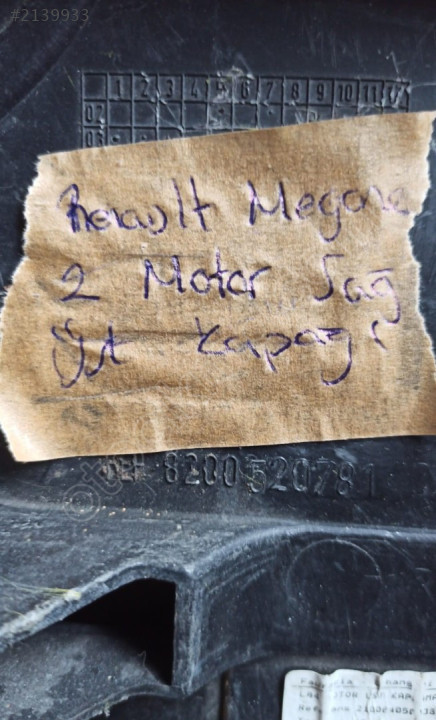 #2139933
1 2 3 4 5 6 7 8 9 10 11 12
02
03
Renault Megane
2 Motor Sağ
Üst Kapağı
8200520781